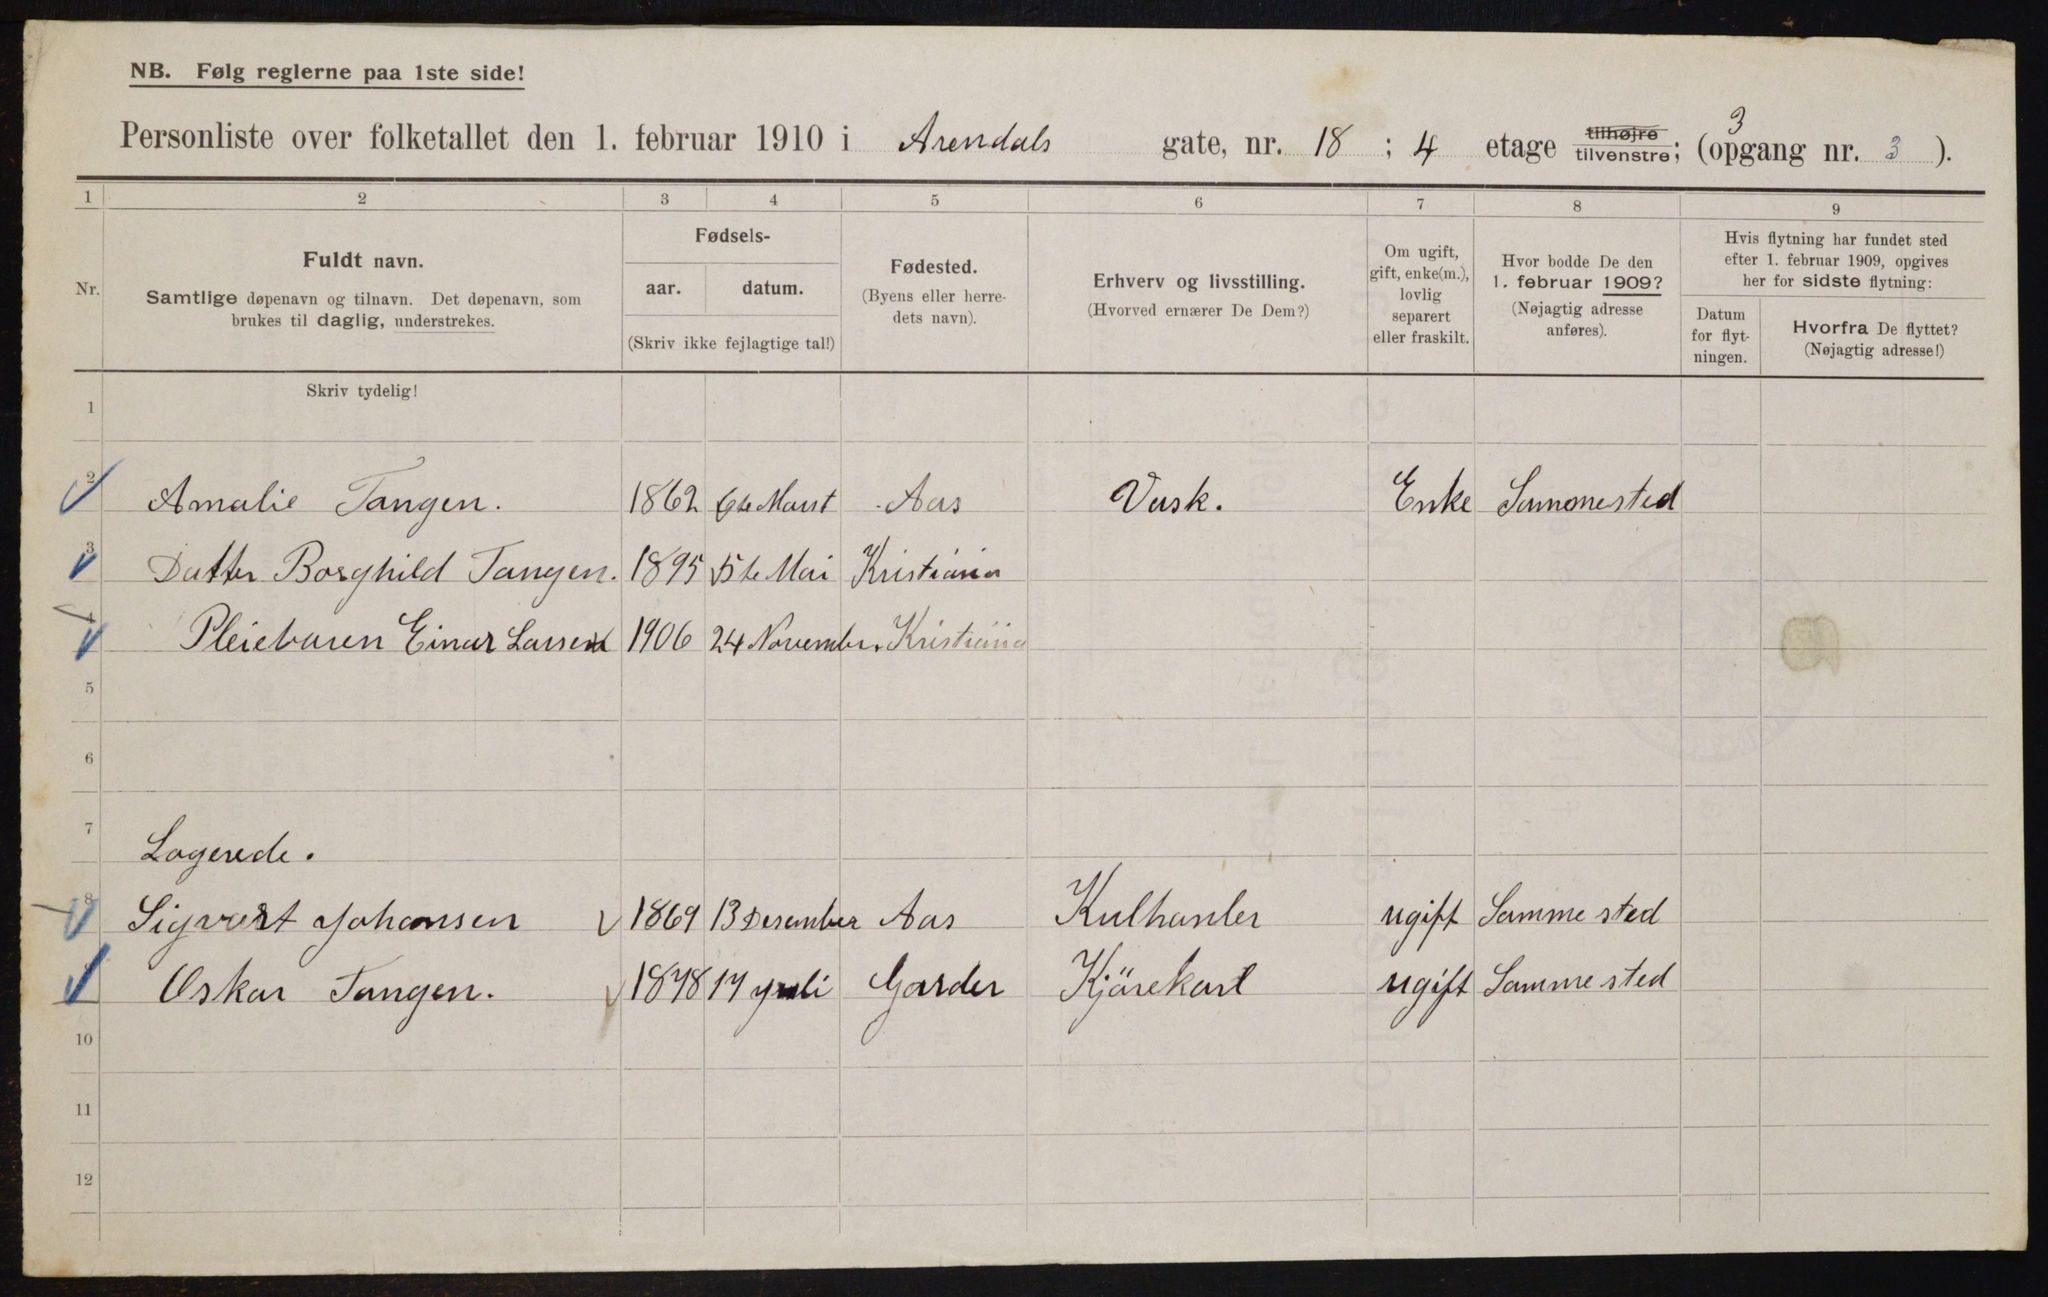 NB. Følg reglerne paa 1ste side!
3
Personliste over folketallet den 1. februar 1910 i Arendals gate, nr. 18 ; 4 etage tilhøjre tilvenstre; (opgang nr. 3 ).
1 2 3 4 5 6 7 8 9
Nr.
Fuldt navn.
Samtlige døpenavn og tilnavn. Det døpenavn, som
brukes til daglig, understrekes.
Fødsels-
aar. datum.
(Skriv ikke fejlagtige tal!)
Fødested.
(Byens eller herre-
dets navn).
Erhverv og livsstilling.
(Hvorved ernærer De Dem?)
Om ugift,
gift, enke(m.),
lovlig
separert
eller fraskilt.
Hvor bodde De den
1. februar 1909?
(Nøjagtig adresse
anføres).
Hvis flytning har fundet sted
efter 1. februar 1909, opgives
her for sidste flytning:
Datum
for flyt-
ningen.
Hvorfra De flyttet?
(Nøjagtig adresse!)
Skriv tydelig!
1
2 Amalie Tangen. 1862 6te Marst Aas Vask. Enke Sammested
3 Datter Borghild Tangen. 1895 15de Mai Kristiania
4 Pleiebaren Einar Larsen 1906 24 November. Kristiania
5
6
7 Logerede.
8 Sigvart Johansen 1869 13 Desember Aas Kulhanler ugift Samme sted
Oskar Tangen. 1878 17 juli Garder Kjörekarl ugift Samme sted
10
11
12